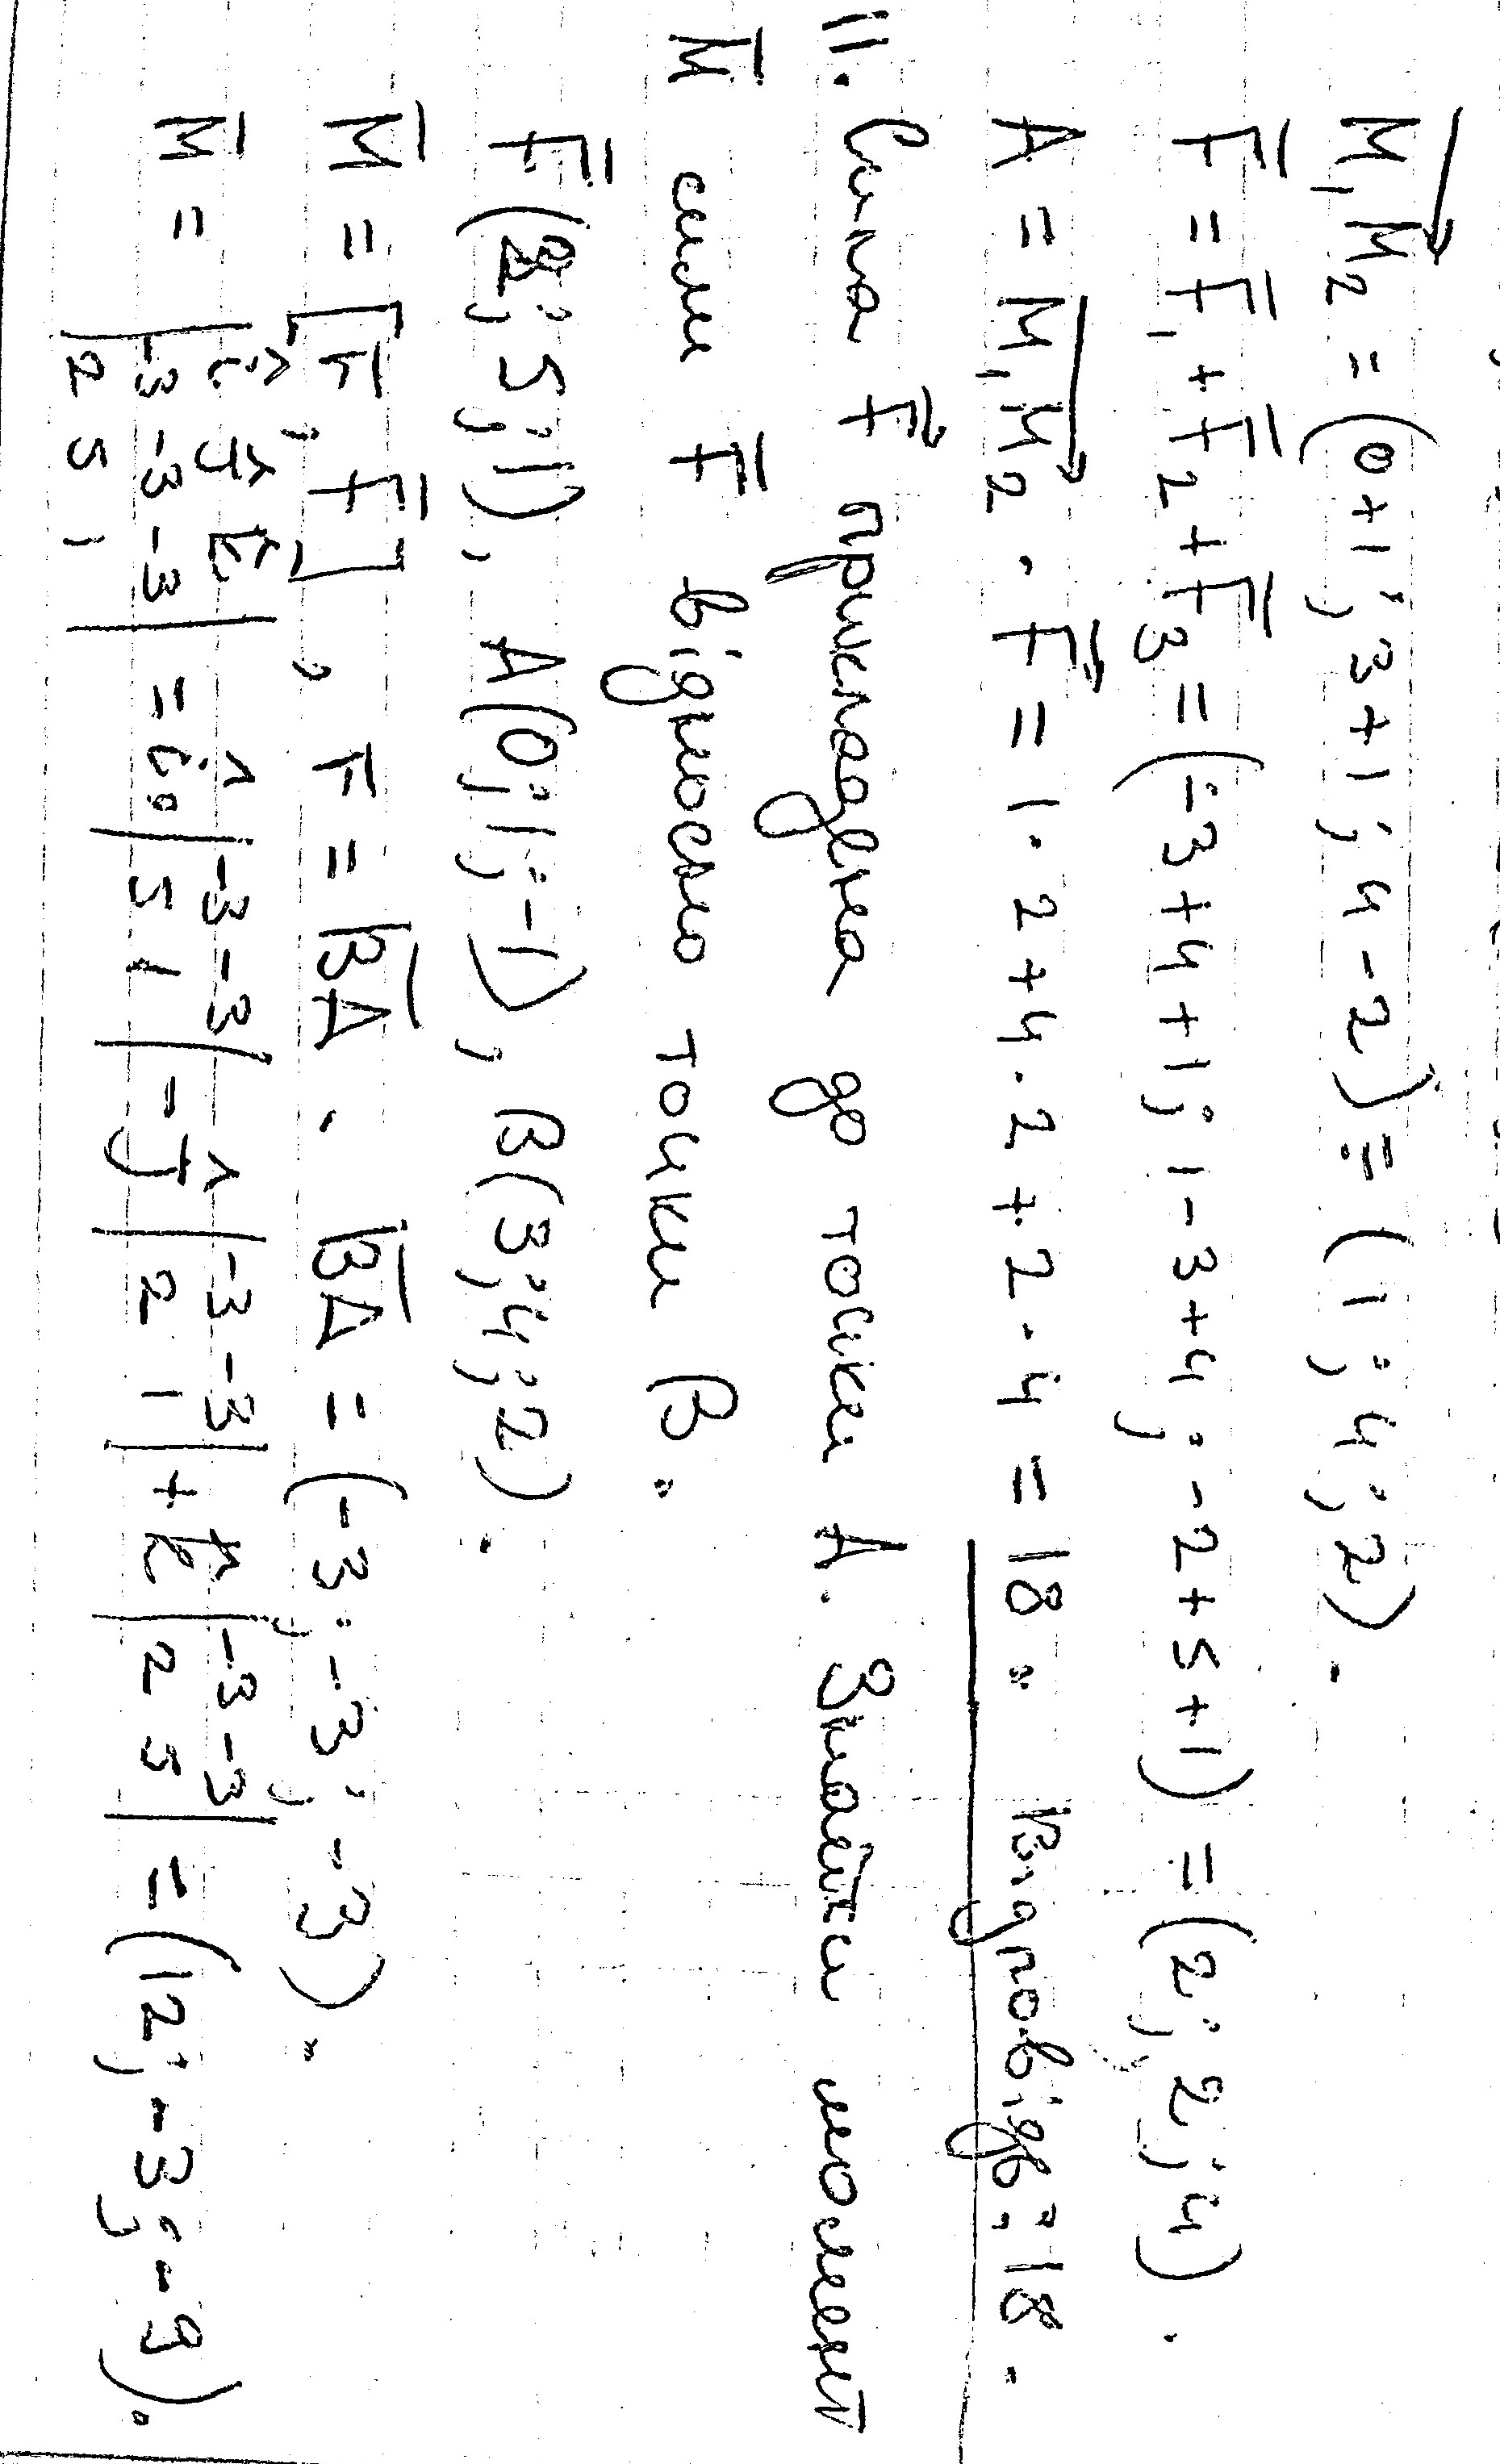 M₁M₂ = (0+1; 3+1; 4-2) = (1; 4; 2).
F̄ = F̄₁ + F̄₂ + F̄₃ = (-3+4+1; 1-3+4; -2+5+1) = (2; 2; 4).
A = M₁M₂ · F̄ = 1·2+4·2+2·4 = 18. Відповідь: 18.
11. Сила F̄ прикладена до точки A. Знайти момент
M̄ сили F̄ відносно точки B.
F̄(2; 5; 1), A(0; 1; -1), B(3; 4; 2).
M̄ = [r̄; F̄], r̄ = B̄Ā. B̄Ā = (-3; -3; -3).
M̄ = |î ĵ k̂; -3 -3 -3; 2 5 1| = î·|-3 -3; 5 1| - ĵ|-3 -3; 2 1| + k̂|-3 -3; 2 5| = (12; -3; -9).